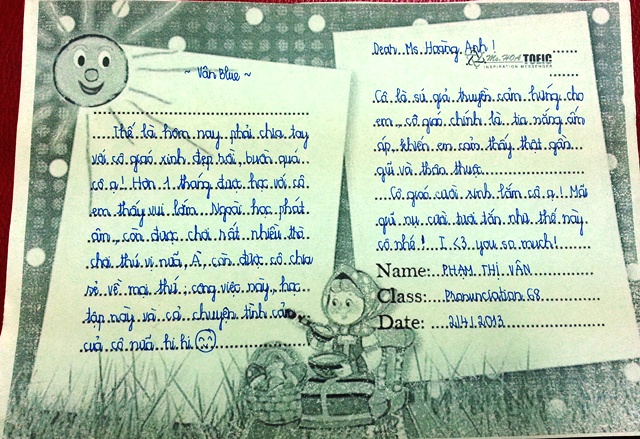 ~ Vân Blue ~
Thế là hôm nay phải chia tay
với cô giáo xinh đẹp rồi, buồn quá
cô ạ! Hơn 1 tháng được học với cô
em thấy vui lắm. Ngoài học phát
âm, còn được chơi rất nhiều trò
chơi thú vị nữa, À, còn được cô chia
sẻ về mọi thứ: công việc này, học
tập này và cả chuyện tình cảm
của cô nữa hi hi
Dear Ms Hoàng Anh!
Ms. HOA TOEIC
INSPIRATION MESSENGER
Cô là sứ giả truyền cảm hứng cho
em, cô giáo chính là tia nắng ấm
áp, khiến em cảm thấy thật gần
gũi và thân thuộc
Cô giáo cười xinh lắm cô ạ! Mãi
giữ nụ cười tươi tắn như thế này
cô nhé! I <3 you so much!
Name: PHẠM THỊ VÂN
Class: Pronunciation 68
Date: 21.4.2013